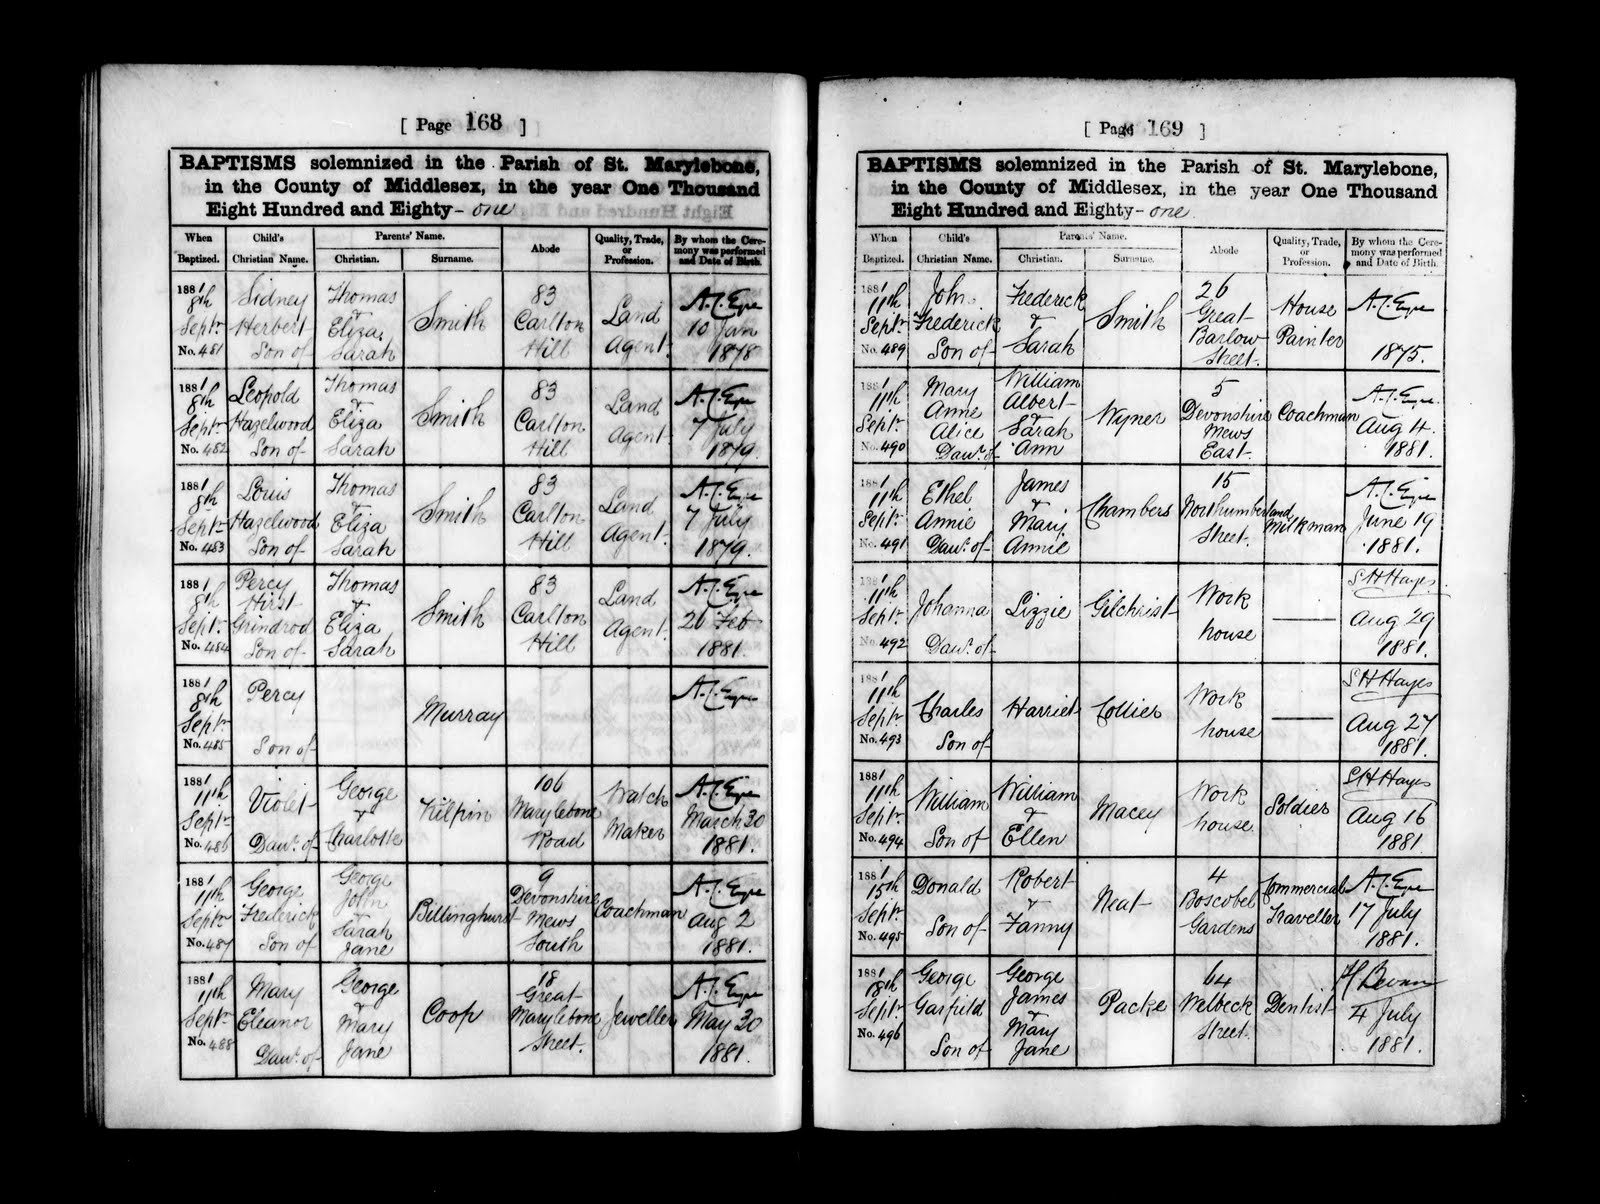 [ Page 168 ]
BAPTISMS solemnized in the Parish of St. Marylebone,
in the County of Middlesex, in the year One Thousand
Eight Hundred and Eighty-one
When Baptized. Child's Christian Name. Parents' Name. Christian. Surname. Abode Quality, Trade, or Profession. By whom the Ceremony was performed and Date of Birth.
1881 8th Sept. No. 481 Sidney Herbert Son of Thomas & Eliza Sarah Smith 83 Carlton Hill Land Agent. A.J. Eyre 10 Jan 1878
1881 8th Sept. No. 482 Leopold Hazelwood Son of Thomas & Eliza Sarah Smith 83 Carlton Hill Land Agent. A.J. Eyre 7 July 1879.
1881 8th Sept. No. 483 Louis Hazelwood Son of Thomas & Eliza Sarah Smith 83 Carlton Hill Land Agent. A.J. Eyre 7 July 1879.
1881 8th Sept. No. 484 Percy Hirst Grindrod Son of Thomas & Eliza Sarah Smith 83 Carlton Hill Land Agent. A.J. Eyre 26 Feb 1881.
1881 8th Sept. No. 485 Percy Son of Murray A.J. Eyre
1881 11th Sept. No. 486 Violet Daur. of George & Charlotte Kilpin 106 Marylebone Road Watch Maker A.J. Eyre March 30 1881.
1881 11th Sept. No. 487 George Frederick Son of George John & Sarah Jane Billinghurst 9 Devonshire Mews South Coachman A.J. Eyre Aug 2 1881.
1881 11th Sept. No. 488 Mary Eleanor Daur. of George & Mary Jane Coop 18 Great Marylebone Street. Jeweller A.J. Eyre May 30 1881.
[ Page 169 ]
BAPTISMS solemnized in the Parish of St. Marylebone,
in the County of Middlesex, in the year One Thousand
Eight Hundred and Eighty-one
When Baptized. Child's Christian Name. Parents' Name. Christian. Surname. Abode Quality, Trade, or Profession. By whom the Ceremony was performed and Date of Birth.
1881 11th Sept. No. 489 John Frederick Son of Frederick & Sarah Smith 26 Great Barlow Street. House Painter A.J. Eyre 1875.
1881 11th Sept. No. 490 Mary Anne Alice Daur. of William Albert & Sarah Ann Wymer 5 Devonshire Mews East. Coachman A.J. Eyre Aug 4. 1881.
1881 11th Sept. No. 491 Ethel Annie Daur. of James & Mary Annie Chambers 15 Northumberland Street. Milkman A.J. Eyre June 19 1881.
1881 11th Sept. No. 492 Johanna Daur. of Lizzie Gilchrist Work house — S H Hayes. Aug 29 1881.
1881 11th Sept. No. 493 Charles Son of Harriet Collier Work house — S H Hayes Aug 27 1881.
1881 11th Sept. No. 494 William Son of William & Ellen Macey Work house Soldier S H Hayes Aug 16 1881
1881 15th Sept. No. 495 Donald Son of Robert & Fanny Neat 4 Boscobel Gardens Commercial Traveller A.J. Eyre 17 July 1881.
1881 18th Sept. No. 496 George Garfield Son of George James & Mary Jane Packe 64 Welbeck Street. Dentist H Bevan 4 July 1881.